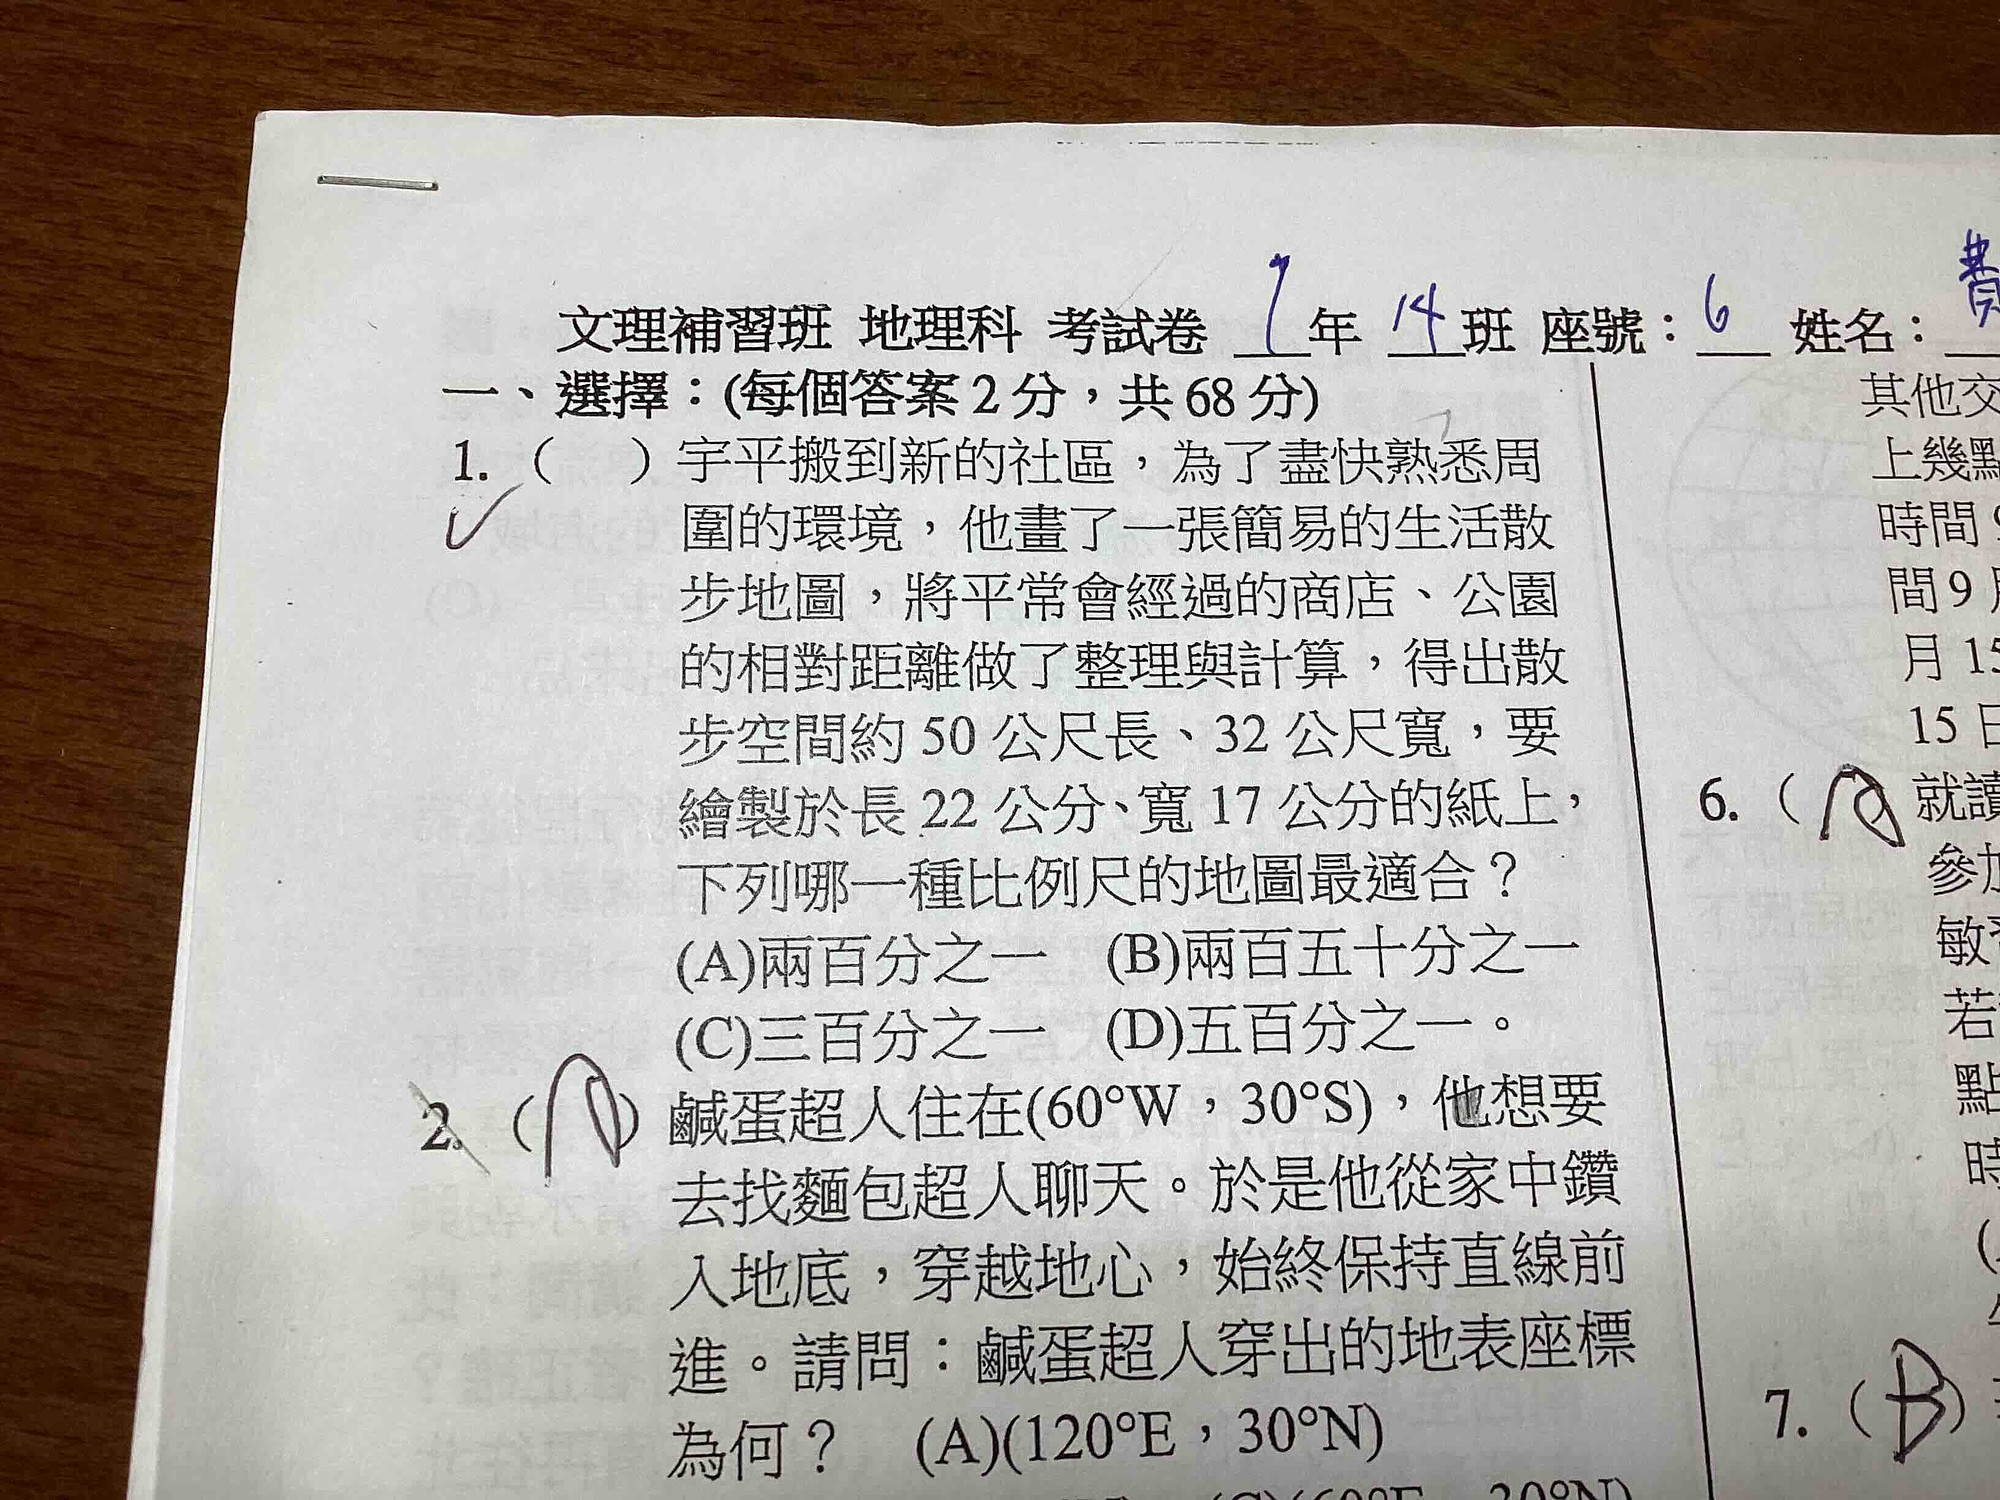 文理補習班 地理科 考試卷 7年 14班 座號：6 姓名：
一、選擇：(每個答案2分，共68分)
1.（ ）宇平搬到新的社區，為了盡快熟悉周
圍的環境，他畫了一張簡易的生活散
步地圖，將平常會經過的商店、公園
的相對距離做了整理與計算，得出散
步空間約 50 公尺長、32 公尺寬，要
繪製於長 22 公分、寬 17 公分的紙上，
下列哪一種比例尺的地圖最適合？
(A)兩百分之一 (B)兩百五十分之一
(C)三百分之一 (D)五百分之一。
2.（A）鹹蛋超人住在(60°W，30°S)，他想要
去找麵包超人聊天。於是他從家中鑽
入地底，穿越地心，始終保持直線前
進。請問：鹹蛋超人穿出的地表座標
為何？ (A)(120°E，30°N)
其他交
上幾點
時間 9
間 9 月
月 15
15 日
6.（A 就讀
參加
敏
若
點
時
7.（B）